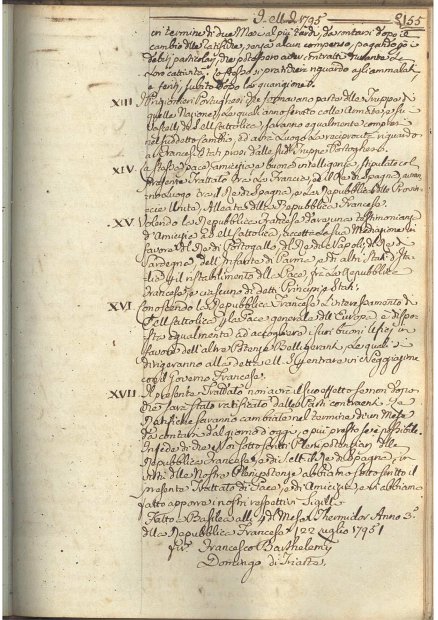 1795
155
in termine di due Mesi al più tardi, da contarsi dopo il
cambio delle Ratifiche, senza alcun compenso, pagando però
i debiti particolari, che potessero aver contratti durante la
loro cattività. Lo stesso si praticherà riguardo agli ammalati
e feriti, subito dopo la guarigione.
XIII I Prigionieri Portughesi, che formavano parte delle Truppe di
quella Nazione, le quali anno servito colle Armate, e su i
Vascelli di S. M. Cattolica, saranno egualmente compresi
nel suddetto cambio, ed avrà luogo la reciprocità riguardo
ai Francesi stati presi dalle sudd. Truppe Portoghesi.
XIV La stessa Pace, amicizia e buona intelligenza, stipulate col
presente Trattato fra la Francia, ed il Re di Spagna, avran-
no luogo tra il Re di Spagna, e la Repubblica delle Provin-
cie Unite, Alleata della Repubblica Francese.
XV Volendo la Repubblica Francese dare una testimonianza
d'Amicizia a S. M. Cattolica, accetta la sua Mediazione in
favore del Re di Portogallo, del Re di Napoli, del Re di
Sardegna, dell'Infante di Parma, e di altri Stati d'Ita-
lia per il ristabilimento della Pace, fra la Repubblica
Francese, e ciascuno di detti Principi e Stati.
XVI Conoscendo la Repubblica Francese l'interessamento di
S. M. Cattolica per la Pace generale dell'Europa, è dispo-
sta egualmente ad accogliere i suoi buoni Ufizi, in
favore dell'altre Potenze Belligeranti, le quali si
dirigeranno alla detta M. S. per entrare in Negoziazione
col Governo Francese.
XVII Il presente Trattato non avrà il suo effetto se non dopo che
sarà stato ratificato dalle Parti contraenti. Le
Ratifiche saranno cambiate nel termine di un Mese
da contarsi dal giorno d'oggi, o più presto se è possibile.
In fede di che, Noi sottoscritti Plenipotenziari della
Repubblica Francese, e di S. M. il Re di Spagna, in
virtù delle Nostre Plenipotenze abbiamo sottoscritto il
presente Trattato di Pace, e di Amicizia, e vi abbiamo
fatto apporre i nostri respettivi Sigilli.
Fatto a Basilea alli 4 del Mese di Thermidor Anno 3º
della Repubblica Francese 22 Luglio 1795
Francesco Barthelemy
Domingo di Iriarte.